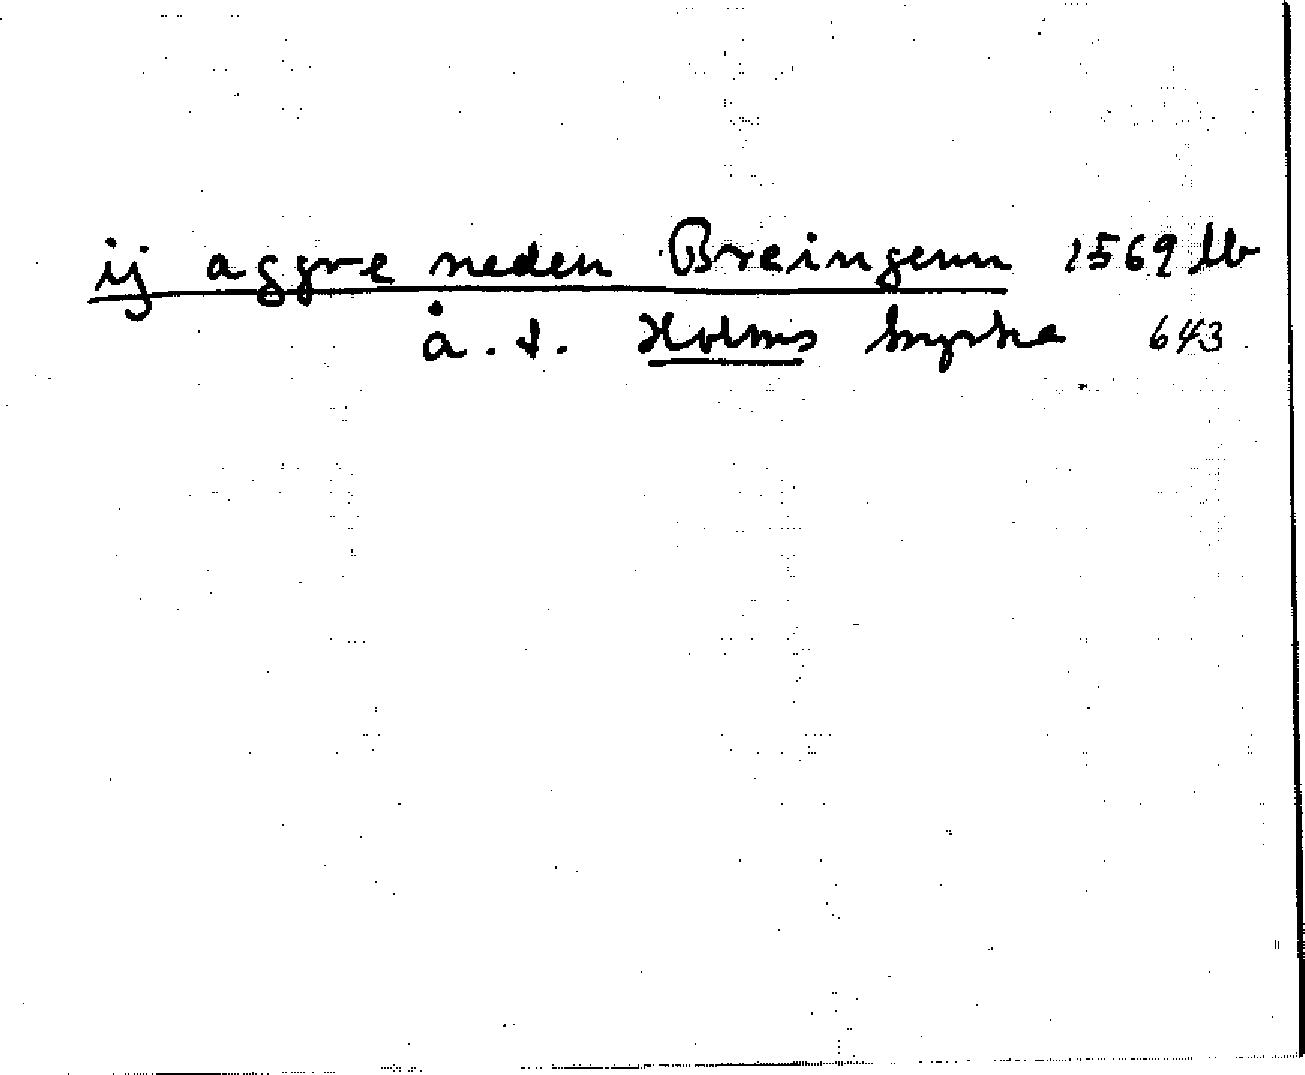 ij aggre neden Breingenn 1569 lb
å. t. Holms kyrka 643